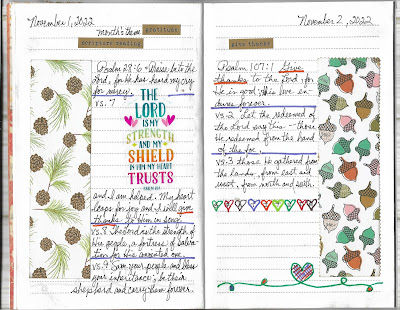 November 1, 2022
month's theme gratitude
scripture reading
Psalm 28:6 - Praise be to the
Lord, for He has heard my cry
for mercy.
vs. 7
THE
LORD
IS MY
STRENGTH
AND MY
SHIELD
IN HIM MY HEART
TRUSTS
and I am helped. My heart
leaps for joy and I will give
thanks to Him in song.
vs. 8 The Lord is the strength of
His people, a fortress of salva-
tion for His annointed one.
vs. 9 Save your people and bless
your inheritance; be their
shepherd and carry them forever.
November 2, 2022
give thanks
Psalm 107:1 Give
thanks to the Lord, for
He is good; His love en-
dures forever.
vs. 2 Let the redeemed of
the Lord say this -- those
He redeemed from the hand
of the foe,
vs. 3 those He gathered from
the lands, from east and
west, from north and south.